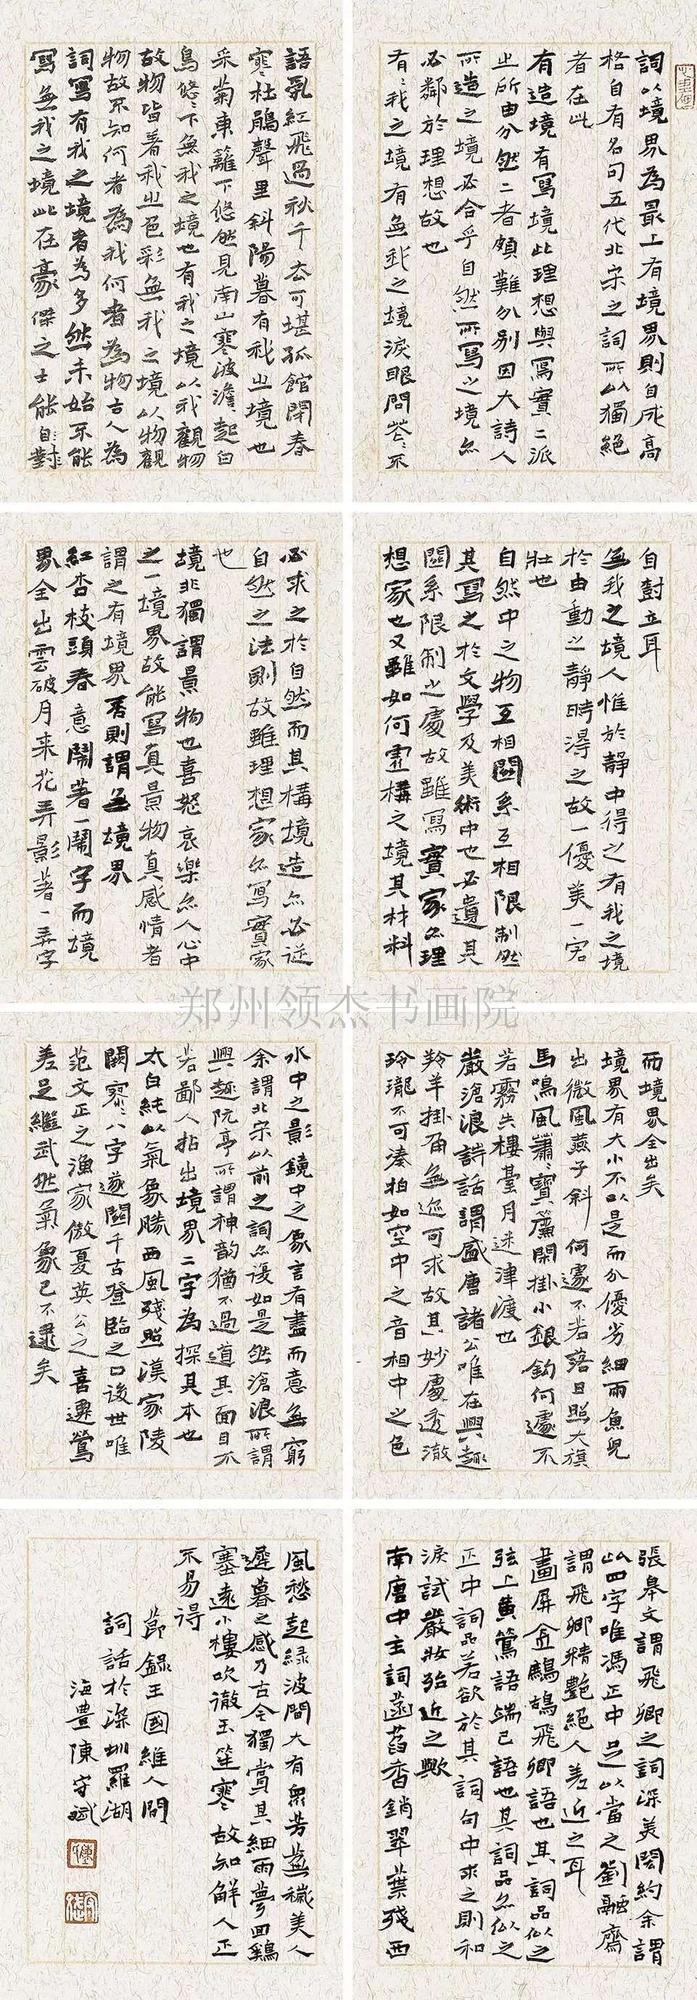 詞以境界為最上有境界則自成高
格自有名句五代北宋之詞所以獨絕
者在此
有造境有寫境此理想與寫實二派
之所由分然二者頗難分別因大詩人
所造之境必合乎自然所寫之境亦
必鄰於理想故也
有〻我之境有無我之境淚眼問花〻不
語亂紅飛過秋千去可堪孤館閉春
寒杜鵑聲里斜陽暮有我之境也
采菊東籬下悠然見南山寒波澹〻起白
鳥悠〻下無我之境也有我之境以我觀物
故物皆著我之色彩無我之境以物觀
物故不知何者為我何者為物古人為
詞寫有我之境者為多然未始不能
寫無我之境此在豪傑之士能自對
自對立耳
無我之境人惟於靜中得之有我之境
於由動之靜時得之故一優美一宏
壯也
自然中之物互相關系互相限制然
其寫之於文學及美術中也必遺其
關系限制之處故雖寫實家亦理
想家也又雖如何虛構之境其材料
必求之於自然而其構境造亦必從
自然之法則故雖理想家亦寫實家
也
境非獨謂景物也喜怒哀樂亦人心中
之一境界故能寫真景物真感情者
謂之有境界否則謂無境界
紅杏枝頭春意鬧著一鬧字而境
界全出雲破月來花弄影著一弄字
而境界全出矣
境界有大小不以是而分優劣細雨魚兒
出微風燕子斜何遽不若落日照大旗
馬鳴風蕭〻寶簾閑掛小銀鈎何遽不
若霧失樓臺月迷津渡也
嚴滄浪詩話謂盛唐諸公唯在興趣
羚羊掛角無迹可求故其妙處透澈
玲瓏不可湊拍如空中之音相中之色
水中之影鏡中之象言有盡而意無窮
余謂北宋以前之詞亦復如是然滄浪所謂
興趣阮亭所謂神韵猶不過道其面目不
若鄙人拈出境界二字為探其本也
太白純以氣象勝西風殘照漢家陵
闕寥〻八字遂關千古登臨之口後世唯
范文正之漁家傲夏英公之喜遷鶯
差足繼武然氣象已不逮矣
張皋文謂飛卿之詞深美閎約余謂
此四字唯馮正中足以當之劉融齋
謂飛卿精艷絕人差近之耳
畫屏金鷓鴣飛卿語也其詞品似之
弦上黄鶯語端己語也其詞品亦似之
正中詞品若欲於其詞句中求之則和
淚試嚴妝殆近之歟
南唐中主詞菡萏香銷翠葉殘西
風愁起緑波間大有衆芳蕪穢美人
遲暮之感乃古今獨賞其細雨夢回鷄
塞遠小樓吹徹玉笙寒故知解人正
不易得
節録王國維人間
詞話於深圳羅湖
海豊陳守斌
郑州领杰书画院